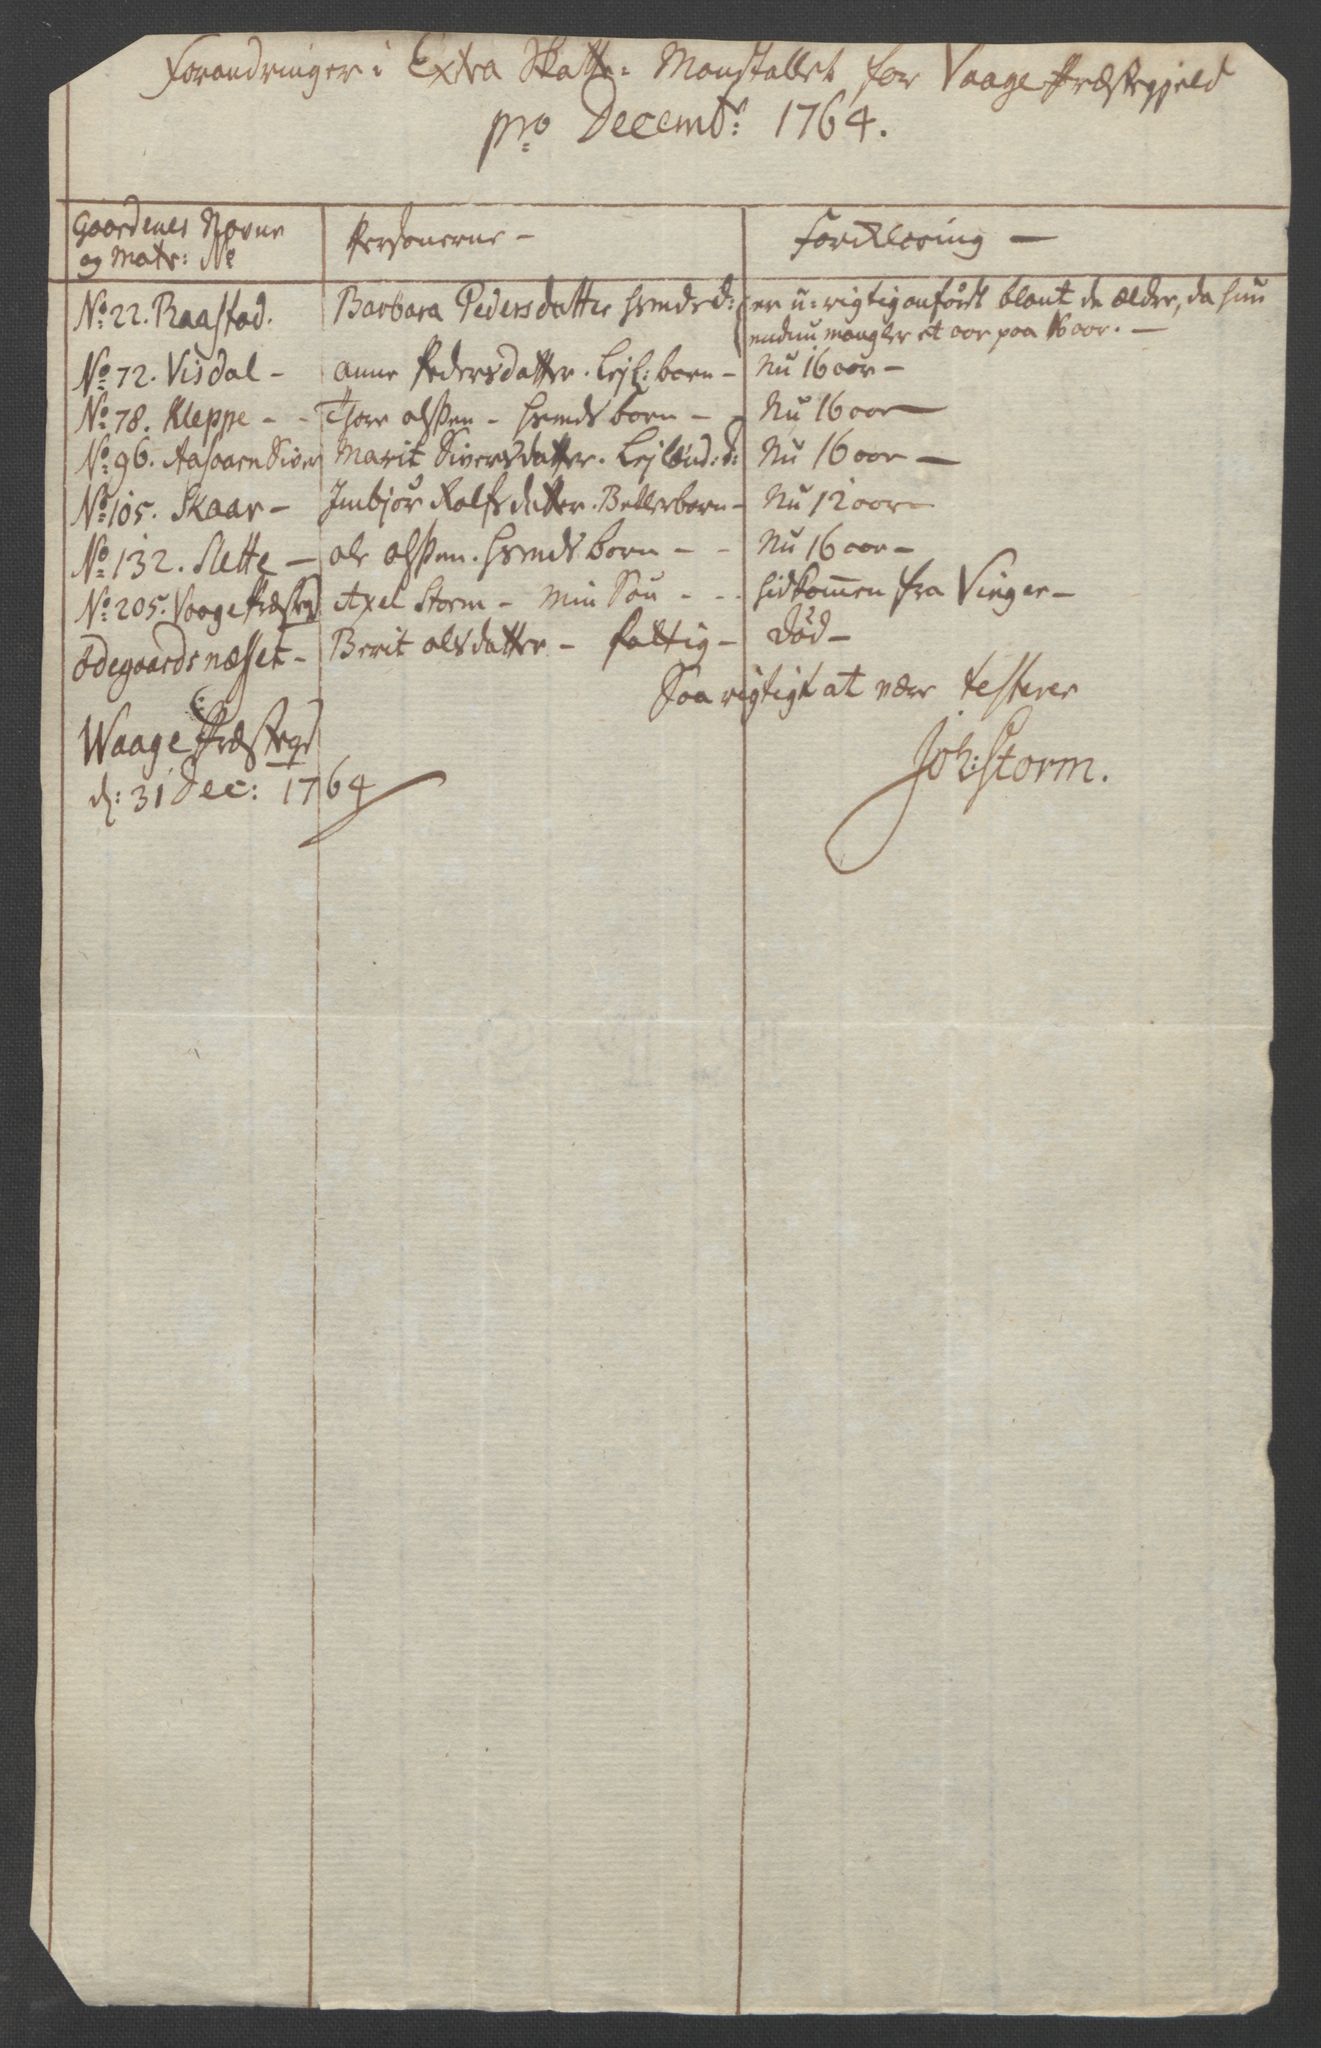 Forandringer i Extra Skatte: Mandtallet for Vaage Præstegjeld
pro Decembr: 1764.
Gaardenes Navne og Matr: No | Personerne - | Forklaring -
No 22. Raastad. | Barbara Pedersdatter huusmds d: | er u-rigtig anført blant de ælder, da hun
endnu mangler et aar paa 16 aar. -
No 72. Visdal - | Anne Pedersdatter. Lejl: barn - | Nu 16 aar -
No 78. Kleppe - - | Thore Olssen - huusmds barn - - | Nu 16 aar -
No 96. Aasaaren Siver | Marit Siversdatter. Lejlænd: d: | Nu 16 aar -
No 105. Skaar - | Imbjør Rolfsdatter. Betlerbarn - | Nu 12 aar -
No 132. Slette - | Ole Olssen. huusmds barn - - | Nu 16 aar -
No 205. Vaage Præstegd | Axel Storm - Min Søn - - - | hidkommen fra Vinger -
Ødegaards næsset - | Berit Olsdatter - fattig - | Død -
Saa rigtigt at være testerer
Waage Præstegd
d: 31 Dec: 1764
Joh: Storm.